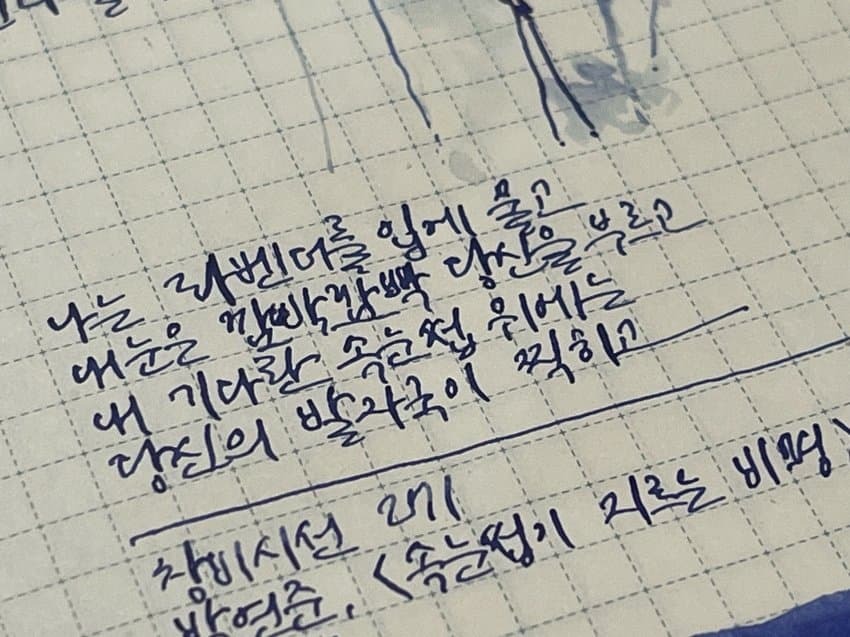 나는 라벤더를 입에 물고
내 눈은 깜빡깜빡 당신을 부르고
내 기다란 속눈썹 위에는
당신의 발자국이 찍히고
창비시선 271
박연준, <속눈썹이 지르는 비명>